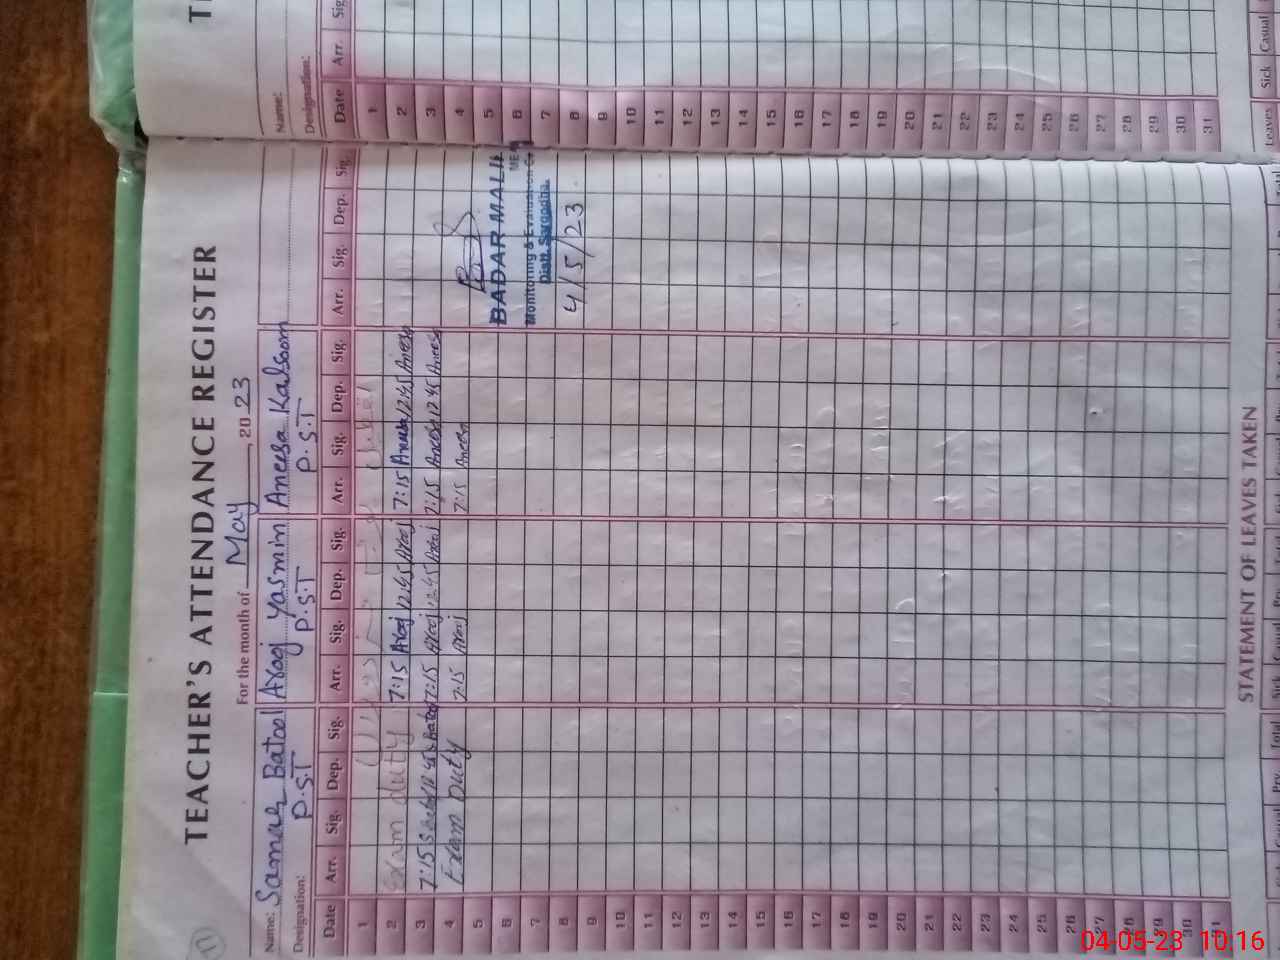 TEACHER'S ATTENDANCE REGISTER
For the month of May, 2023
Name: Samar Batool Arooj Yasmin Aneesa Kalsoom
Designation: P.S.T P.S.T P.S.T
Date Arr. Sig. Dep. Sig. Arr. Sig. Dep. Sig. Arr. Sig. Dep. Sig. Arr. Sig. Dep. Sig.
1
2 Exam duty 7:15 Arooj 12:45 Arooj 7:15 Aneesa 12:45 Aneesa
3 7:15 S Batool 12:45 S Batool 7:15 Arooj 12:45 Arooj 7:15 Aneesa 12:45 Aneesa
4 Exam Duty 7:15 Arooj 7:15 Aneesa
5
6
7
8
9
10
11
12
13
14
15
16
17
18
19
20
21
22
23
24
25
26
27
28
29
30
31
BADAR MALIK
Monitoring & Evaluation
Distt. Sargodha.
4/5/23
STATEMENT OF LEAVES TAKEN
Name:
Designation:
Date Arr. Sig.
1
2
3
4
5
6
7
8
9
10
11
12
13
14
15
16
17
18
19
20
21
22
23
24
25
26
27
28
29
30
31
Leaves Sick Casual
04-05-23 10:16